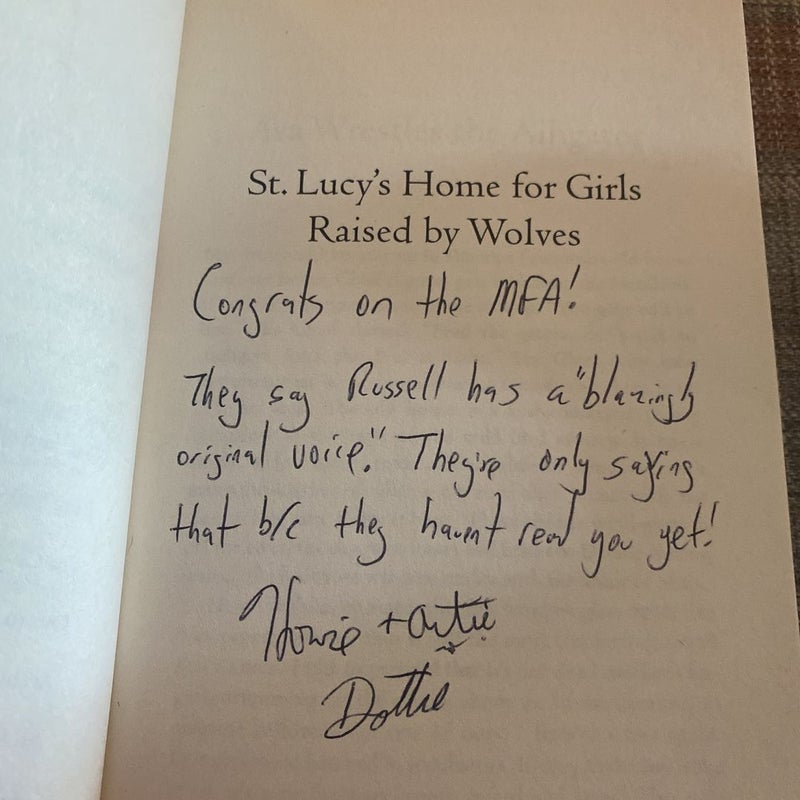 St. Lucy's Home for Girls
Raised by Wolves
Congrats on the MFA!
They say Russell has a "blazingly
original voice." They're only saying
that b/c they havent read you yet!
Howie + Artie
Dottie